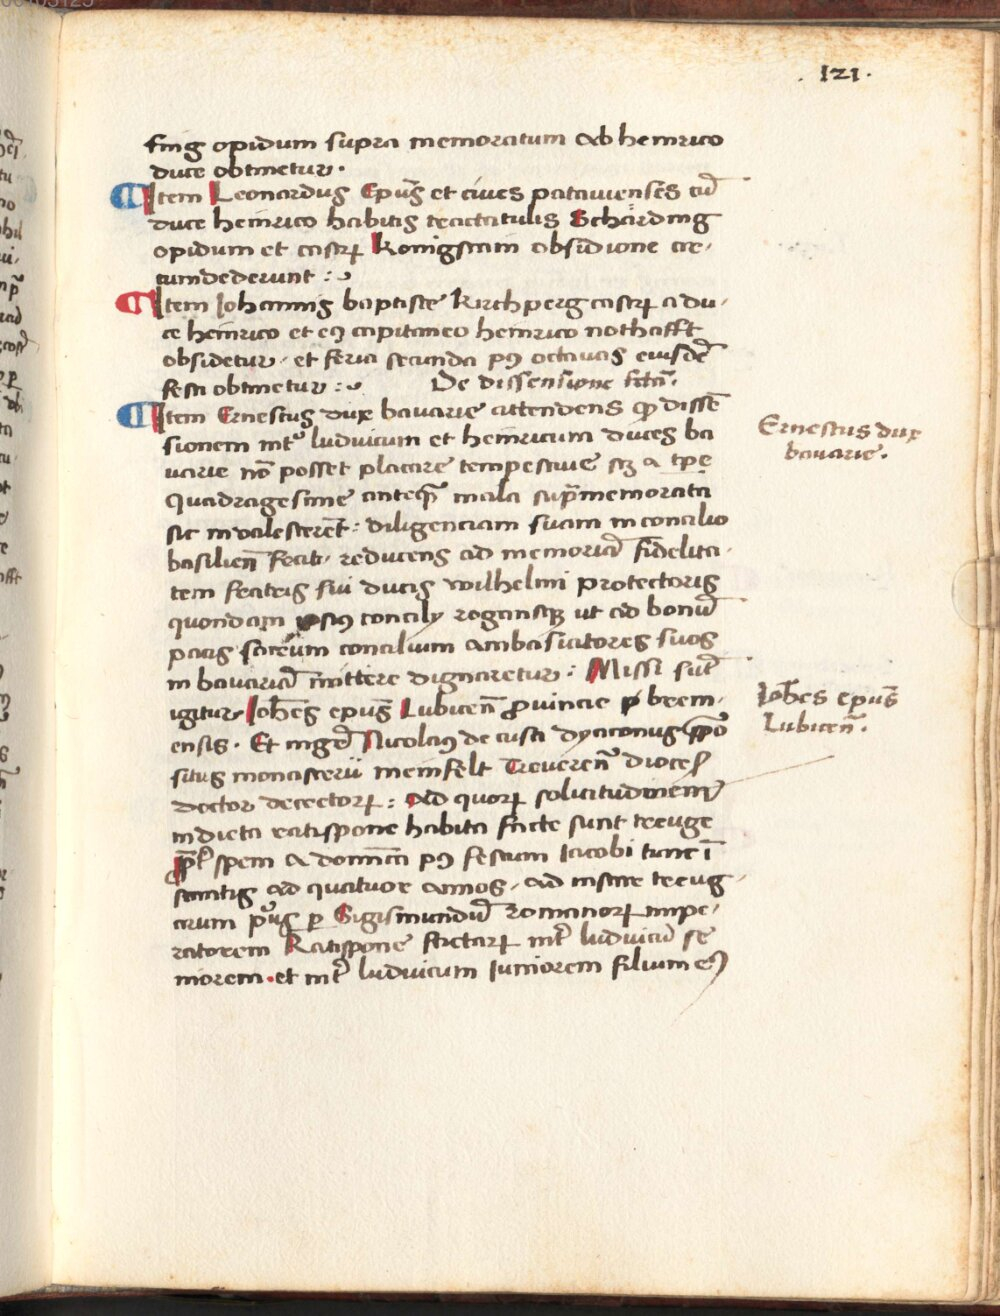 .121.
fing opidum supra memoratum ab heinrico
duce obtinetur.
Item Leonardus Epūs et cives patauienses cū
duce heinrico habitis tractatulis Schärding
opidum et castrꝝ Konigstain obsidione cir-
cumdederunt :
Item Iohannis baptiste Kirchperg castrꝝ a du-
ce heinrico et eꝰ capitaneo heinrico nothafft
obsidetur. et feria secunda pꝰ octauas eiusdē
festi obtinetur :
De dissensione
Item Ernestus dux bavarie attendens ꝙ dissē
sionem int̕ ludvicum et heinricum duces ba
uarie nō posset placare tempestiue sꝫ a tp̄e
Quadragesime anteqꝫ mala sup̄memorata
sic inualescerēt: diligenciam suam in concilio
basilien̄ fecit. reducens ad memoriā fidelita-
tem fratris sui ducis wilhelmi protectoris
quondam ipsiꝰ concily rogansqꝫ ut ad bonū
pacis sacrum concilium ambasiatores suos
in bavariā mittere dignaretur: Missi sūt
igitur Ioh̄es epus̄ Lubicen̄ provincie brem-
ensis. Et mgr̄ Nicolaꝰ de cusa dyaconus p̄po
situs monasterii meinfelt Treveren̄ dioces̄
doctor decretorꝝ: Ad quorꝝ solicitudinem
in dieta ratispone habita facte sunt treuge
spem a domīca pꝰ festum Iacobi tunc ī
stantis ad quatuor annos. ad instar treug-
arum priꝰ ꝑ Sigismundū Romanorꝝ impe-
ratorem Ratispone factarꝝ int̕ ludvicū se
niorem. et int̕ ludvicum Iuniorem filium eꝰ
Ernestus dux
bavarie.
Ioh̄es epus̄
Lubicen̄.